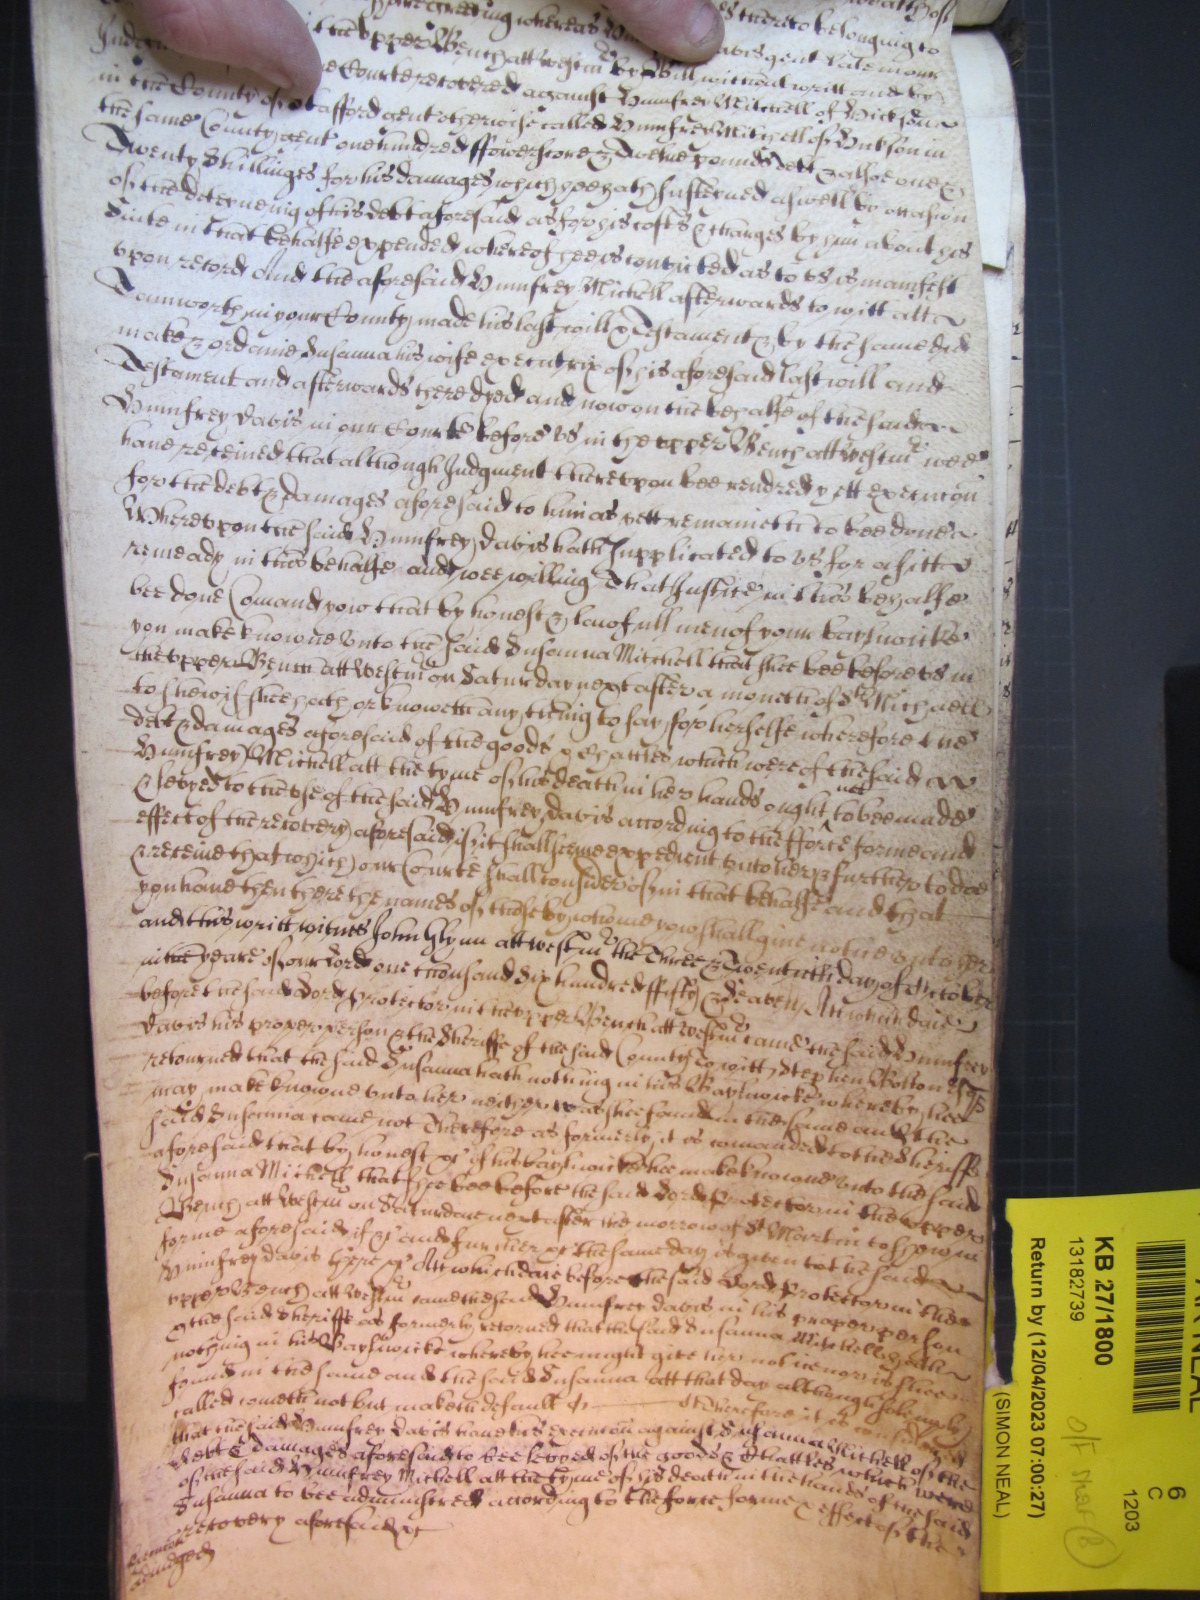 thereto belonging to
greeting whereas Davis gent late in our
the upper Bench att Westm by Bill without writt and by
Courte recovered against Humfrey Mitchell of Hickson
in the County of Stafford gent otherwise called Humfrey Mitchell of Hickson in
the same County gent one hundred ffowerscore & Twelve pounds debt & alsoe one &
Twenty shillinges for his damages which hee hath susteyned aswell by occasion
of the deteyneing of his debt aforesaid as for his costs & charges by him about his
Suite in that behalfe expended whereof hee is convicted as to us is manifest
upon record And the aforesaid Humfrey Mitchell afterwards to witt att
Tamworth in your County made his last will & Testament & by the same did
make & ordaine Susanna his wife executrix of his aforesaid last will and
Testament and afterwards there dyed and now on the behalfe of the said
Humfrey Davis in our Courte before us in the upper Bench att Westmr wee
have received that although Judgment thereupon bee rendred yett execucon
for the debt & damages aforesaid to him as yett remaineth to bee done
Whereupon the said Humfrey Davis hath supplicated to us for a fitt
remeady in this behalfe and wee willing That Justice in this behalfe
bee done Comand yow that by honest & lawfull men of your bayliwicke
you make knowne unto the said Susanna Mitchell that shee bee before us in
the upper Bench att Westmr on Saturday next after a moneth of St Michaell
to shew if shee hath or knoweth any thing to say for herselfe wherefore the
debt & damages aforesaid of the goods & chattles which were of the said
Humfrey Mitchell att the tyme of his death in her hands ought not to bee made
& levyed to the use of the said Humfrey Davis according to the fforce forme and
effect of the recovery aforesaid if it shall seeme expedient unto her & further to doe
& receive that which our Courte shall consider of in that behalfe And that
you have then there the names of those by whome yow shall give notice unto her
and this writt witnes John Glynn att Westmr the Three & Twentieth day of October
in the yeare of our Lord one thousand six hundred ffifty & seaven Att which daie
before the said Lord Protector in the upper Bench att Westmr came the said Humfrey
Davis in his proper person & the Sheriffe of the said County to witt Stephen Bolton Esq
retourned that the said Susanna hath nothing in his Baylywicke whereby hee
may make knowne unto her neither was shee found in the same and the
said Susanna came not Therefore as formerly it is comanded to the Sheriffe
aforesaid that by honest &c of his baylywicke hee make knowne unto the said
Susanna Mitchell that shee bee before the said Lord Protector in the upper
Bench att Westmr on Saturdaie next after the morrow of St Martin to shew in
forme aforesaid if &c and further &c the same day is given to the said
Humfrey Davis there &c Att which daie before the said Lord Protector in the
upper Bench att Westmr came the said Humfrey Davis in his proper person
& the said Sheriffe as formerly retorned that the said Susanna Mitchell hath
nothing in his Baylywicke whereby hee might give her notice nor is shee
found in the same and the said Susanna att that day although solempnly
called cometh not but maketh default Therefore it is considered
that the said Humfrey Davis have his execucon against Susanna Mitchell of the
debt & damages aforesaid to bee levyed of the goods & Chattles which were
of the said Humfrey Mitchell att the tyme of his death in the hands of the said
Susanna to bee administred according to the force forme & effect of the
recovery aforesaid &c
adiudged
KB 27/1800
13182739
Return by (12/04/2023 07:00:27)
(SIMON NEAL)
6
C
1203